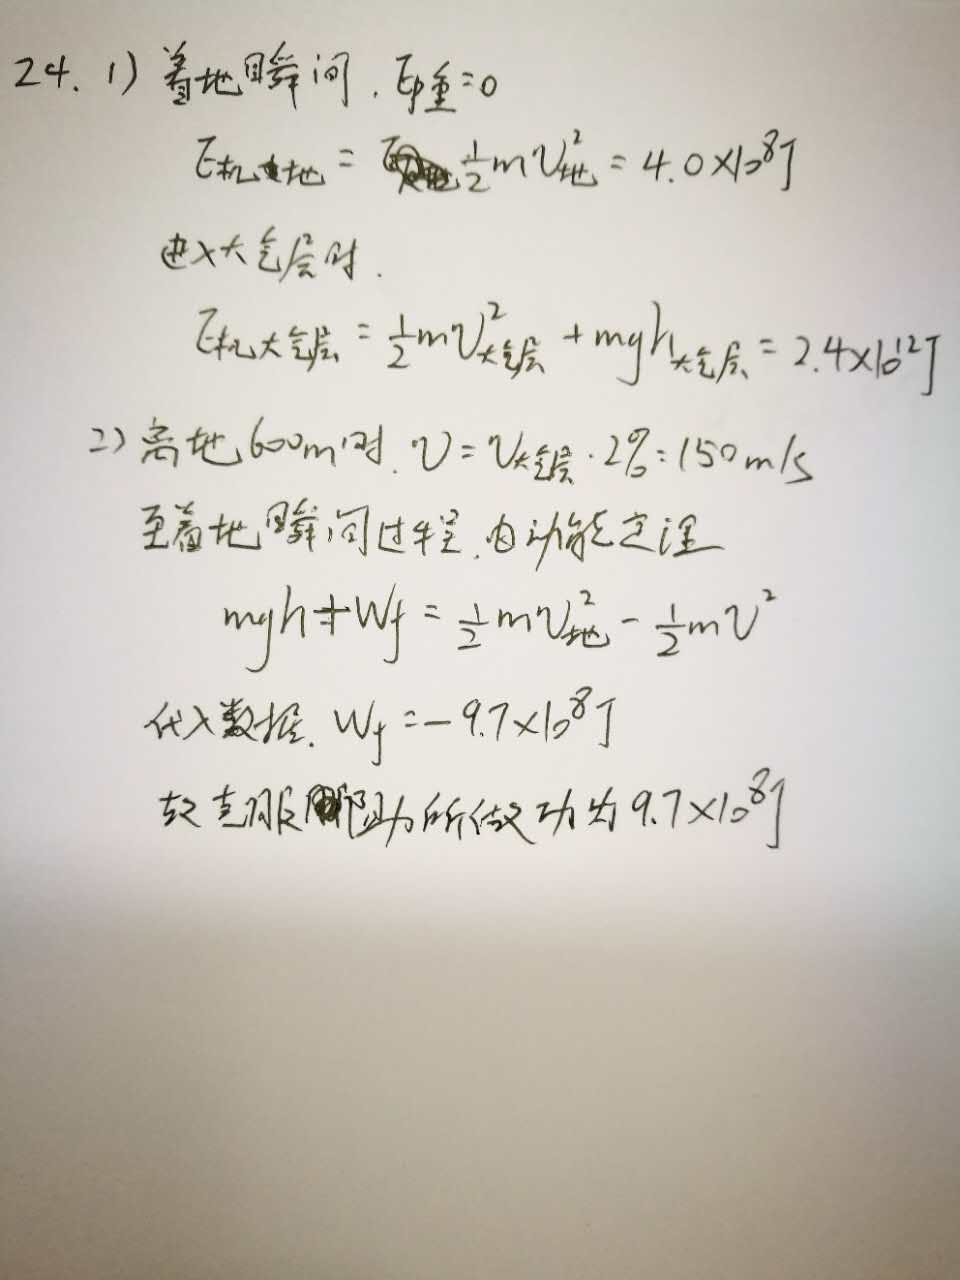 24. 1) 着地瞬间. Ep重=0
E机地 = ½mv地² = 4.0×10⁸J
进入大气层时.
E机大气层 = ½mv大气层² + mgh大气层 = 2.4×10¹²J
2) 离地600m时. v = v大气层·2% = 150m/s
至着地瞬间过程. 由动能定理
mgh + Wf = ½mv地² - ½mv²
代入数据. Wf = -9.7×10⁸J
故克服阻力所做功为9.7×10⁸J